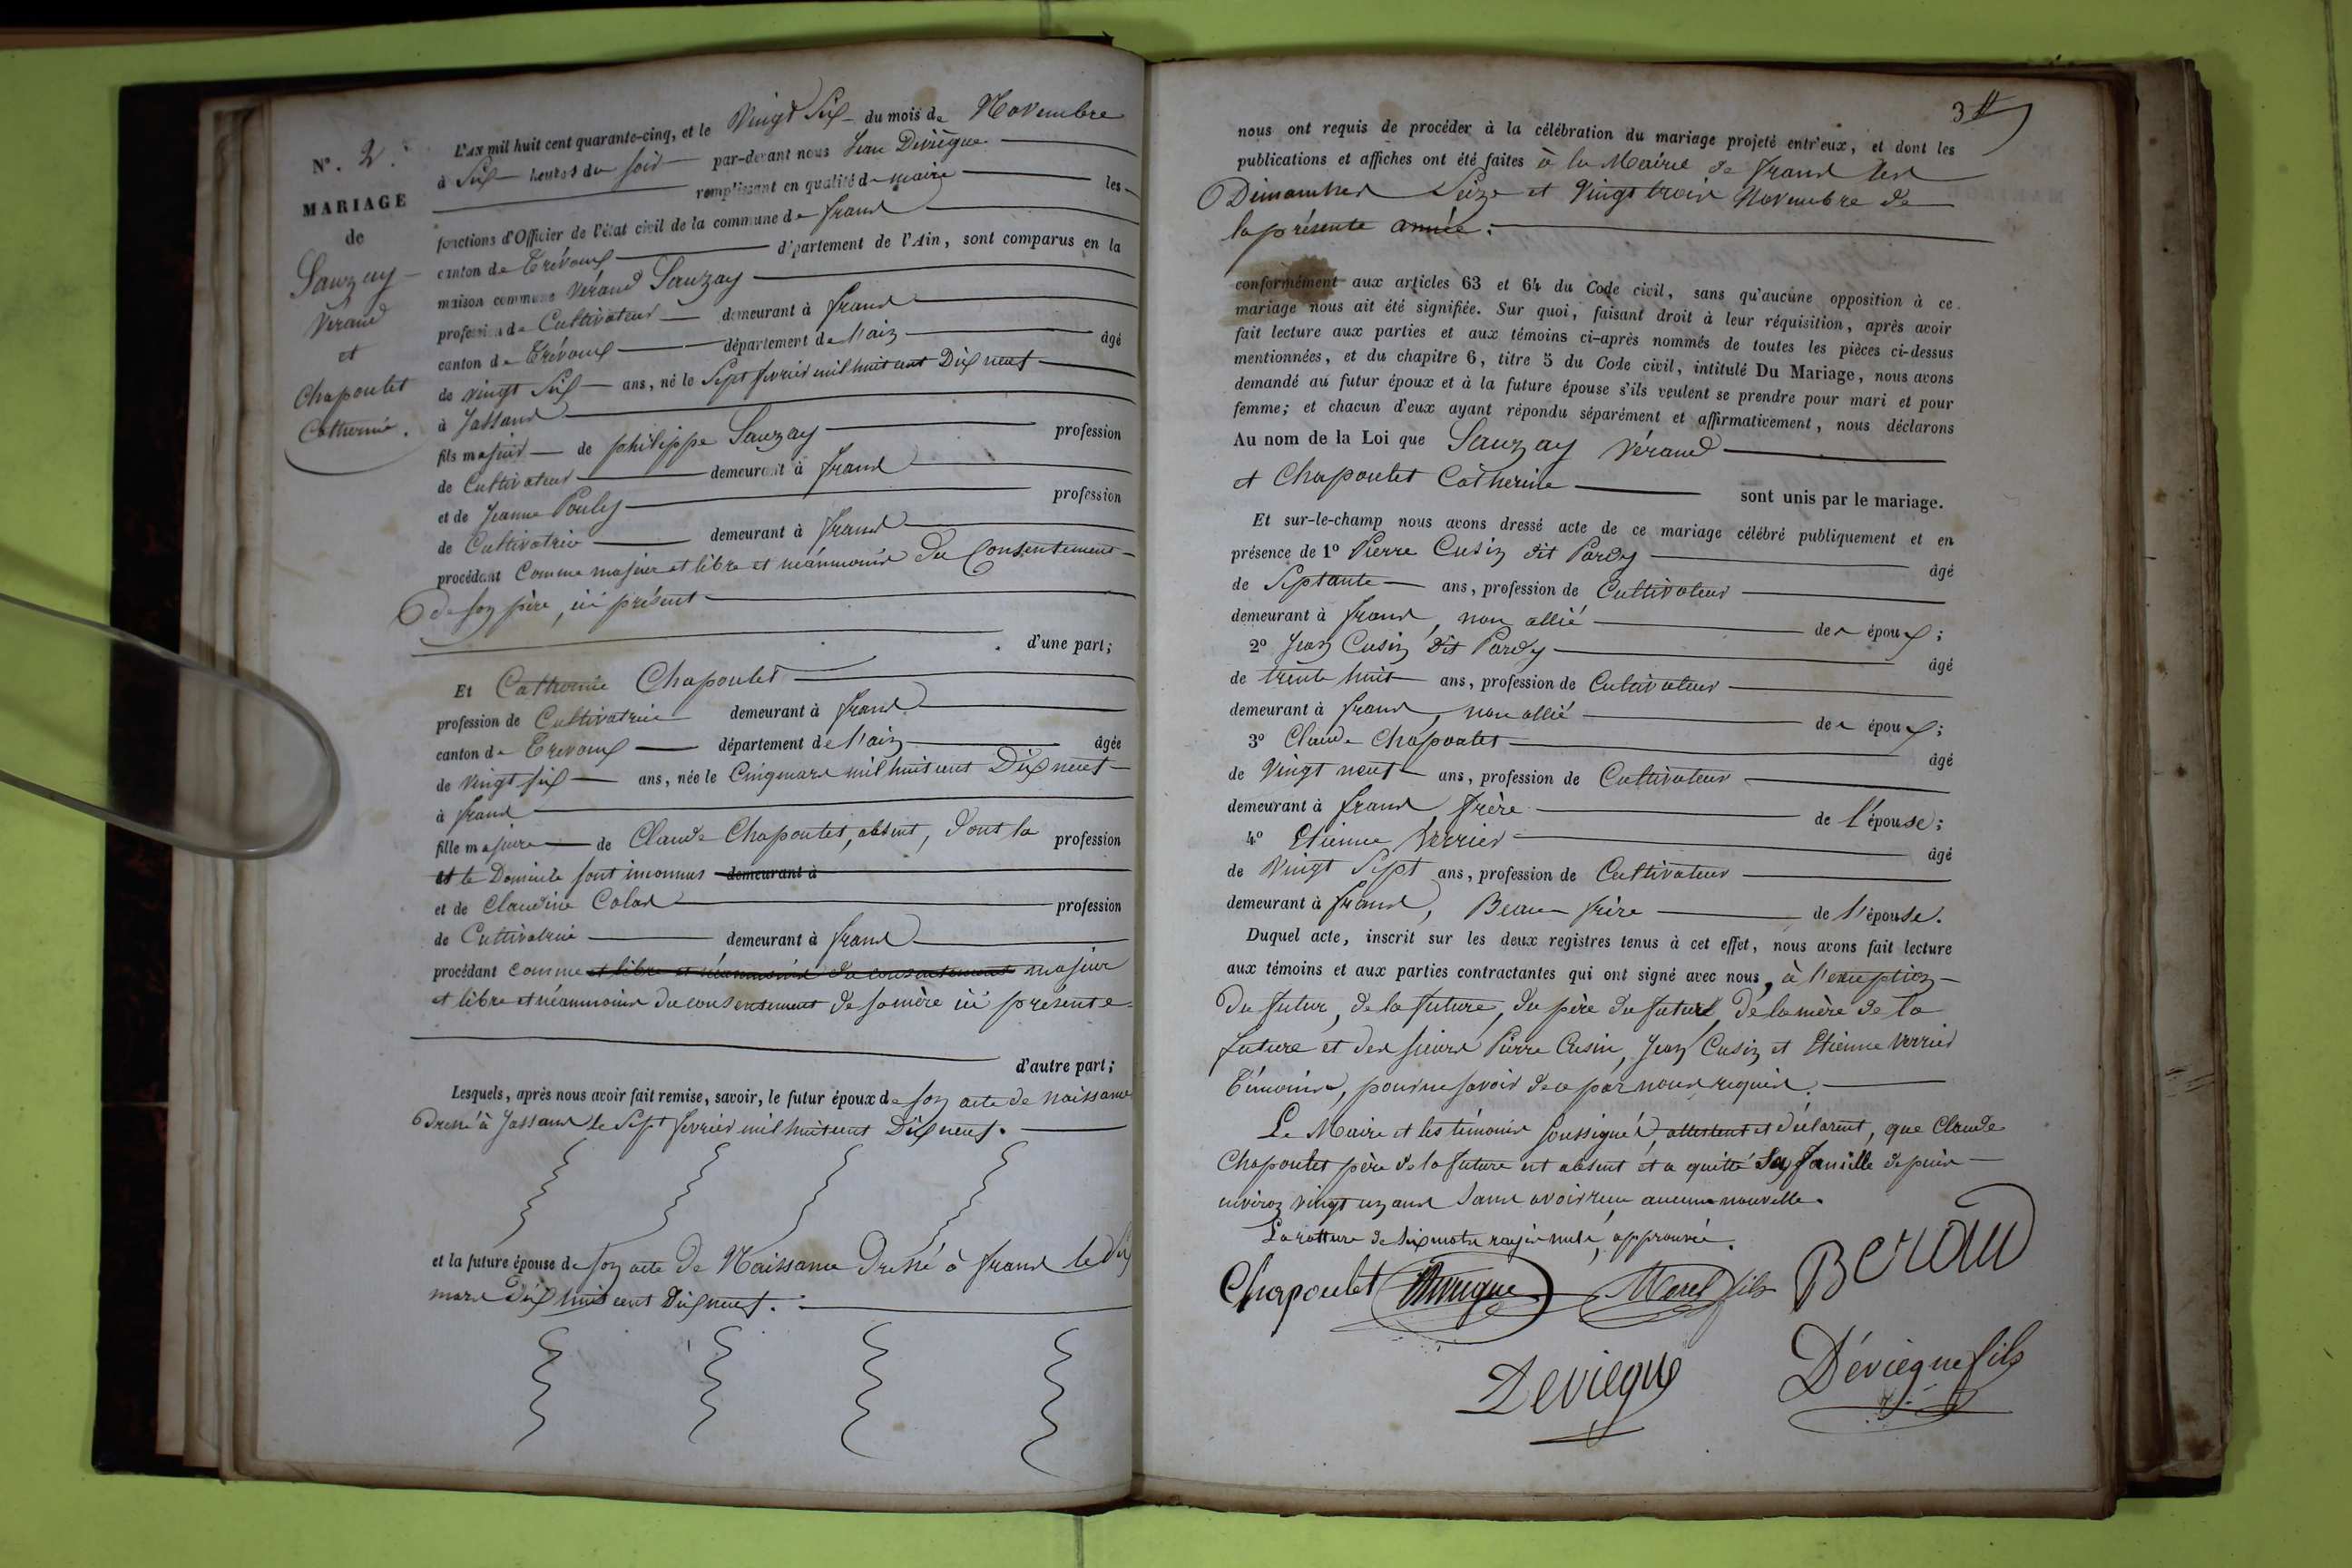 N°. 2.
MARIAGE
de
Sauzay
Verand
et
Chapoulet
Catherine.
L'AN mil huit cent quarante-cinq, et le Vingt Six du mois de Novembre
à Six heures du soir par-devant nous Jean Déviègue
remplissant en qualité de maire les
fonctions d'Officier de l'état civil de la commune de frans
canton de Trévoux département de l'Ain, sont comparus en la
maison commune Vérand Sauzay
profession de Cultivateur demeurant à frans
canton de Trévoux département de l'ain âgé
de vingt Six ans, né le Sept février mil huit cent Dix neuf
à Jassans
fils majeur de philippe Sauzay profession
de Cultivateur demeurant à frans
et de Jeanne Pouly profession
de Cultivatrice demeurant à frans
procédant Comme majeur et libre et néanmoins du Consentement
de son père, ici présent
d'une part;
Et Catherine Chapoulet
profession de Cultivatrice demeurant à frans
canton de Trevoux département de l'ain âgée
de vingt six ans, née le Cinq mars mil huit cent Dix neuf
à frans
fille majeure de Claude Chapoulet, absent, dont la profession
et le Domicile sont inconnus demeurant à
et de Claudine Colas profession
de Cultivatrice demeurant à frans
procédant comme et libre et néanmoins du consentement majeure
et libre et néanmoins du consentement de sa mère ici présente
d'autre part;
Lesquels, après nous avoir fait remise, savoir, le futur époux de son acte de naissance
Dressé à Jassans le Sept février mil huit cent Dix neuf.
et la future épouse de son acte de Naissance Dressé à frans le Six
mars Dix huit cent Dix neuf.
nous ont requis de procéder à la célébration du mariage projeté entr'eux, et dont les
publications et affiches ont été faites à la Mairie de frans les
Dimanches Seize et Vingt trois Novembre de
la présente année.
conformément aux articles 63 et 64 du Code civil, sans qu'aucune opposition à ce
mariage nous ait été signifiée. Sur quoi, faisant droit à leur réquisition, après avoir
fait lecture aux parties et aux témoins ci-après nommés de toutes les pièces ci-dessus
mentionnées, et du chapitre 6, titre 5 du Code civil, intitulé Du Mariage, nous avons
demandé au futur époux et à la future épouse s'ils veulent se prendre pour mari et pour
femme; et chacun d'eux ayant répondu séparément et affirmativement, nous déclarons
Au nom de la Loi que Sauzay Vérand
et Chapoulet Catherine sont unis par le mariage.
Et sur-le-champ nous avons dressé acte de ce mariage célébré publiquement et en
présence de 1° Pierre Cusin dit Pardy âgé
de Septante ans, profession de Cultivateur
demeurant à frans, non allié des époux;
2° Jean Cusin dit Pardy âgé
de trente huit ans, profession de Cultivateur
demeurant à frans, non allié des époux;
3° Claude Chapoulet âgé
de Vingt neuf ans, profession de Cultivateur
demeurant à frans frère de l'épouse;
4° Etienne Verrier âgé
de Vingt Sept ans, profession de Cultivateur
demeurant à frans, Beau frère de l'épouse.
Duquel acte, inscrit sur les deux registres tenus à cet effet, nous avons fait lecture
aux témoins et aux parties contractantes qui ont signé avec nous, à l'exception
Du futur, de la future, du père du futur, de la mère de la
future et des sieurs Pierre Cusin, Jean Cusin et Etienne Verrier
Témoins, pour ne savoir de ce par nous requis.
Le Maire et les témoins soussignés, attestent et déclarent, que Claude
Chapoulet père de la future est absent et a quitté sa famille depuis
environ vingt un ans sans avoir reçu aucune nouvelle.
La rature de six mots rayés nuls, approuvée.
Chapoulet Morel fils Berau
Deviegue Déviegue fils